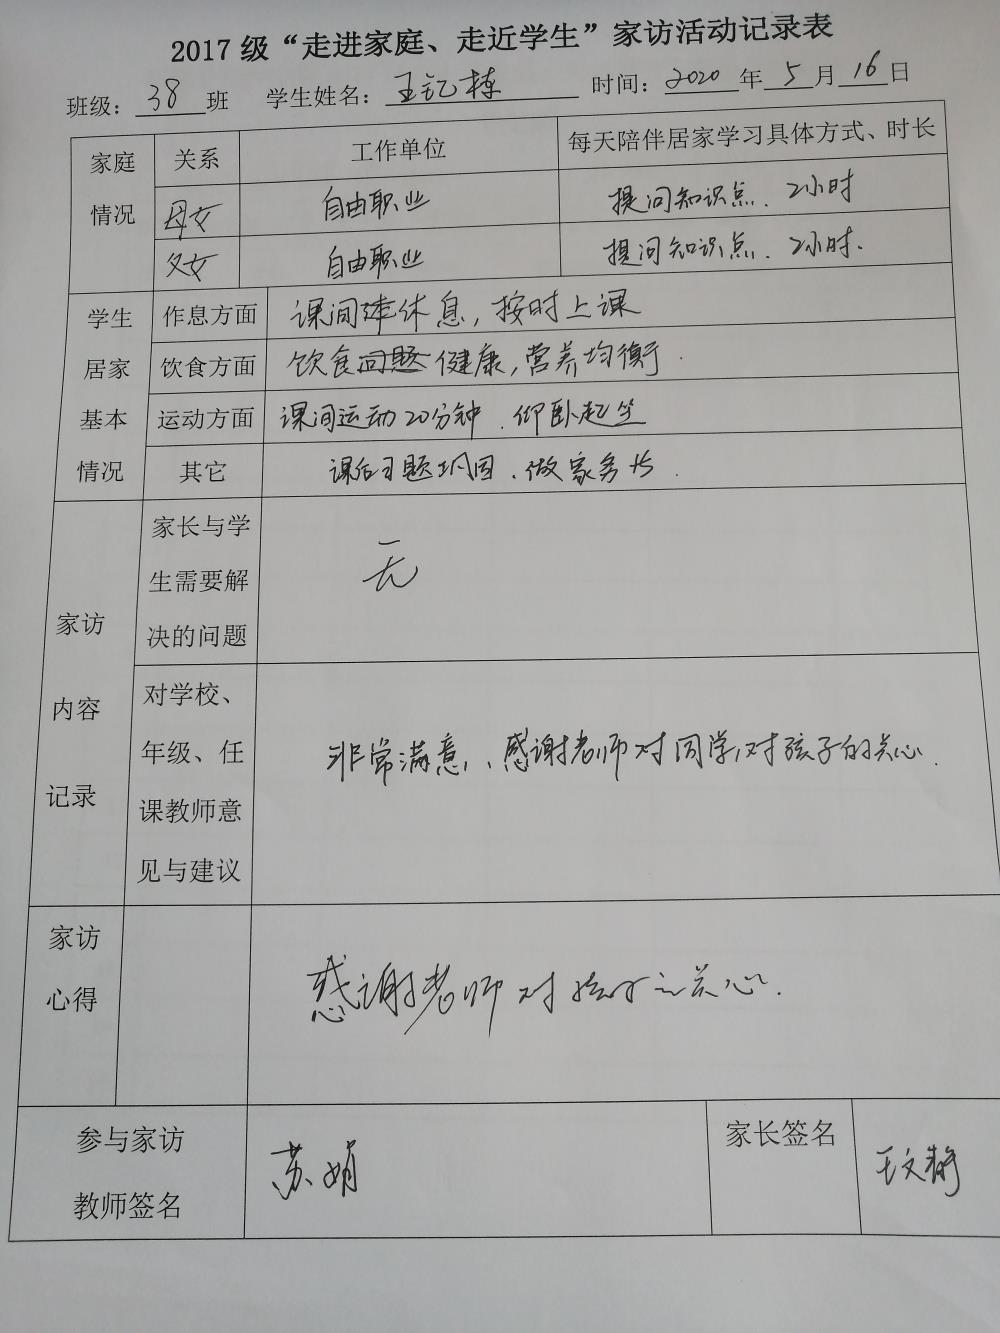 2017级“走进家庭、走近学生”家访活动记录表
班级：38班 学生姓名：王钇栋 时间：2020年5月16日
家庭情况 关系 工作单位 每天陪伴居家学习具体方式、时长
母女 自由职业 提问知识点、2小时
父女 自由职业 提问知识点、2小时.
学生居家基本情况 作息方面 课间休息，按时上课
饮食方面 饮食健康，营养均衡.
运动方面 课间运动20分钟、仰卧起坐
其它 课后习题巩固、做家务
家访内容记录
家长与学
生需要解
决的问题
无
对学校、
年级、任
课教师意
见与建议
非常满意、感谢老师对同学，对孩子的关心.
家访
心得
感谢老师对孩子之关心.
参与家访
教师签名
苏娟
家长签名
王文静